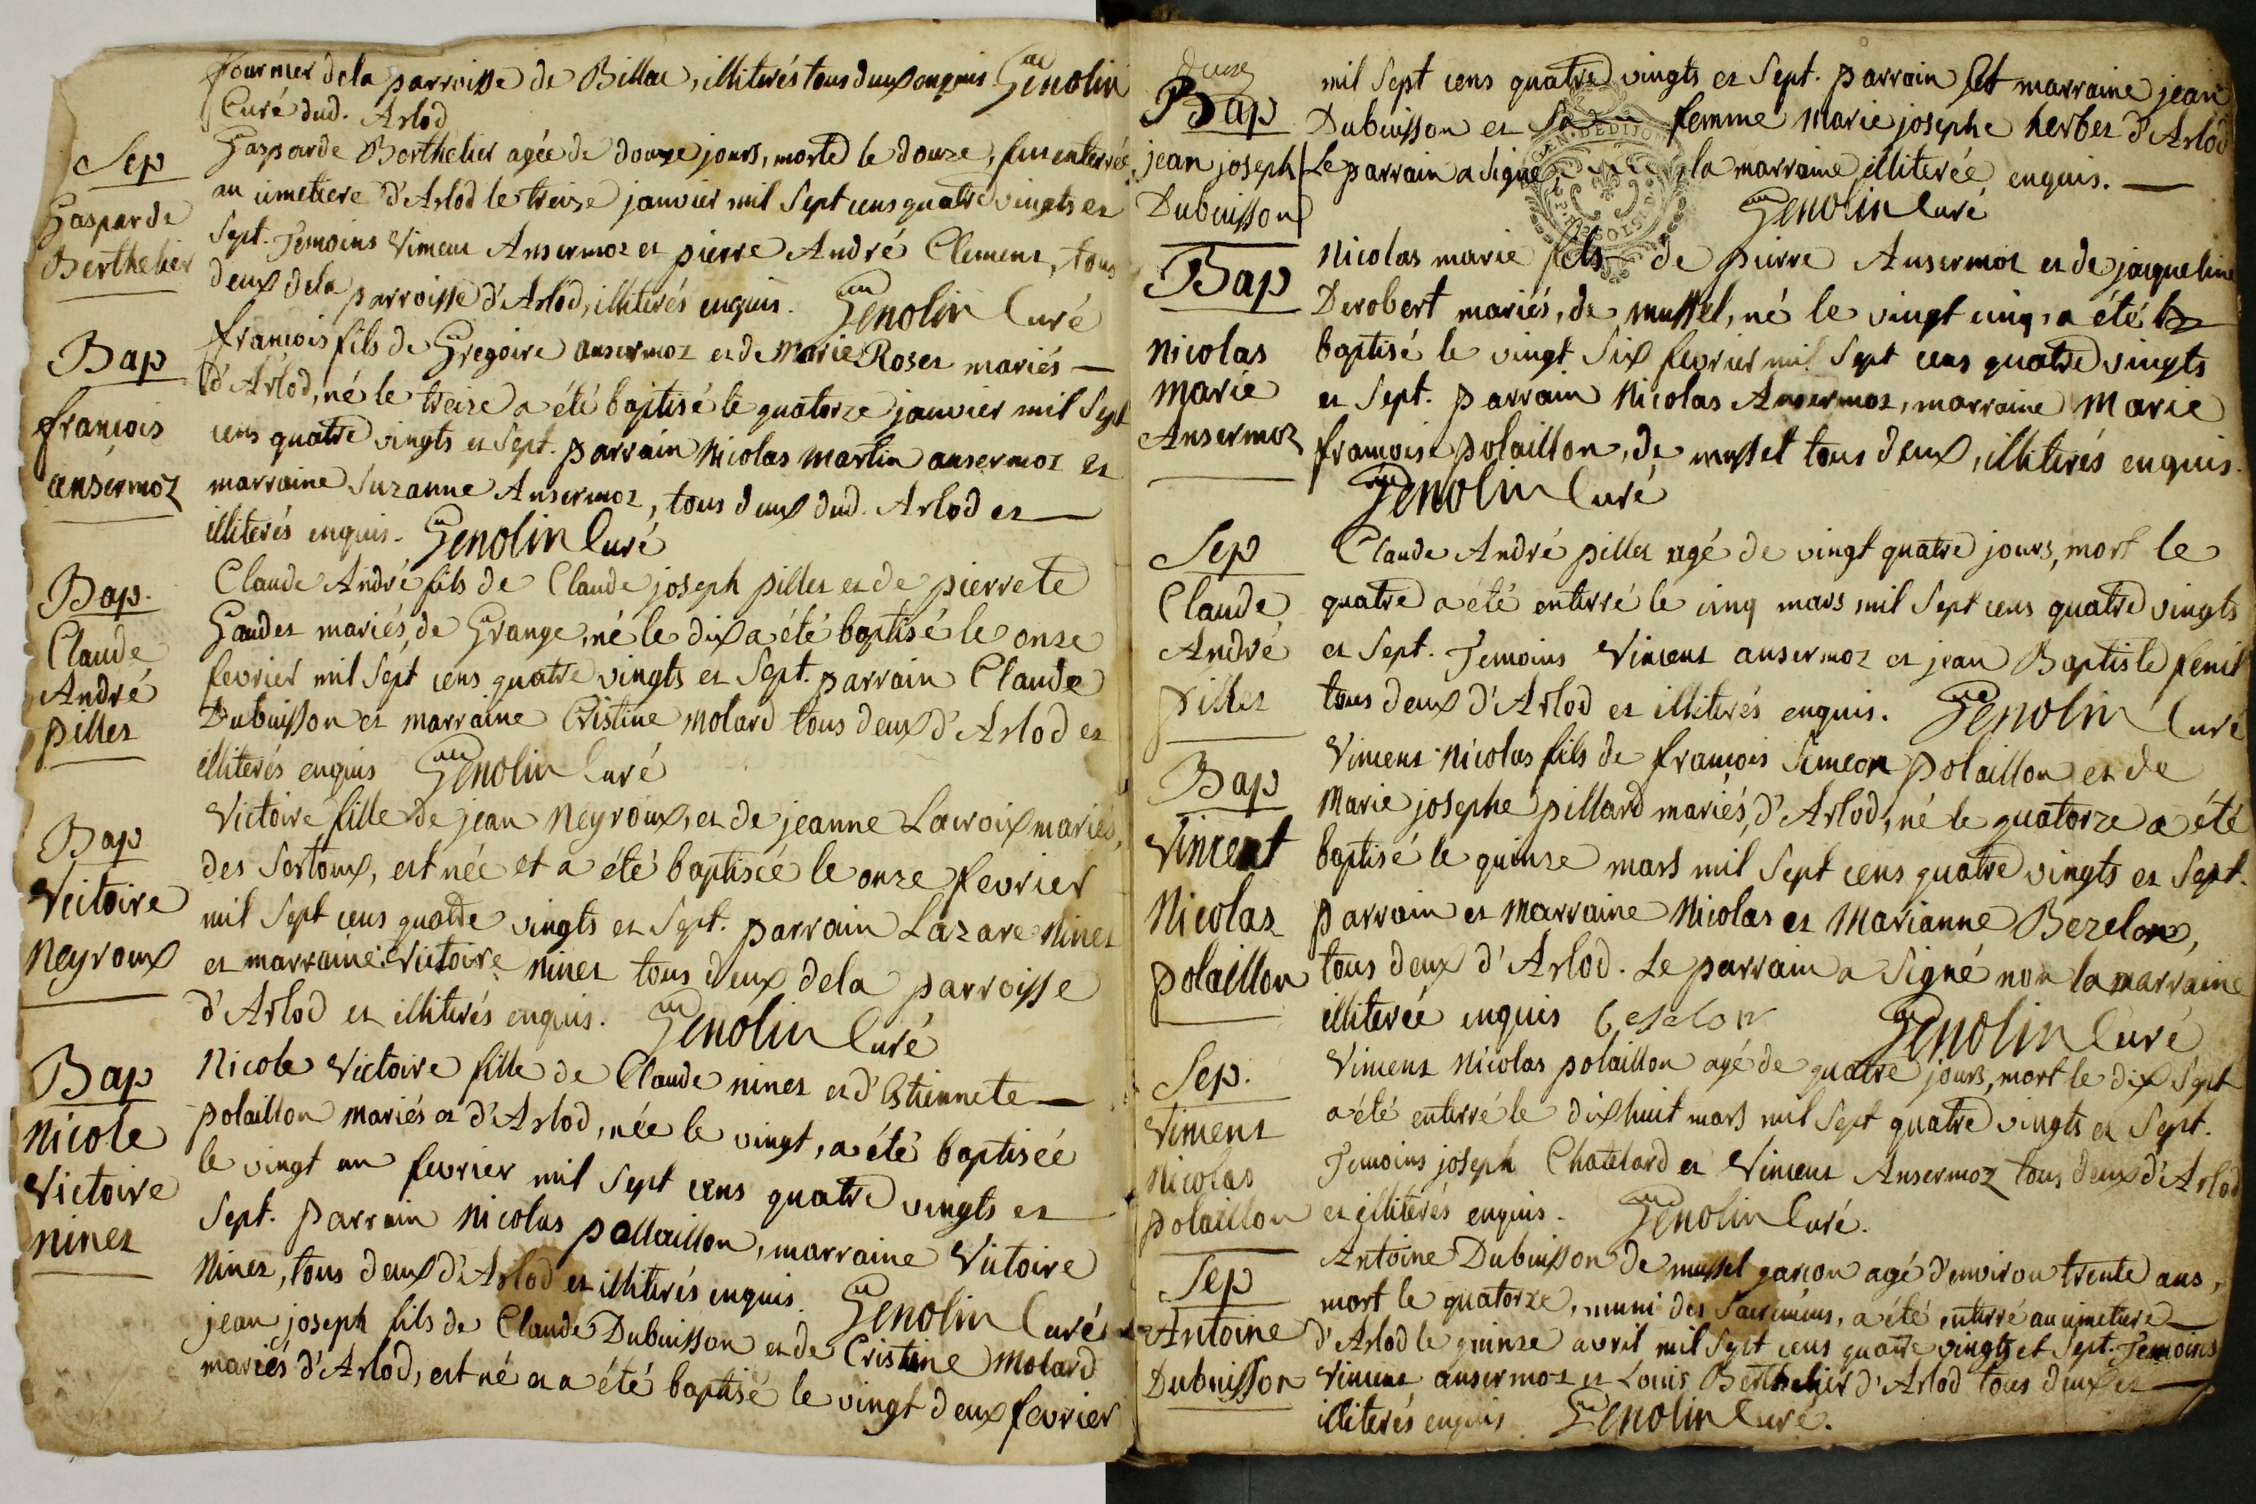 fournier dela parroisse de Billac, illiterés tous deux enquis. Genolin
Curé dud. Arlod
Sep
Gasparde
Berthelier
Gasparde Berthelier agée de douze jours, morte le douze, fut enterrée
au cimetiere d'Arlod le treize janvier mil sept cens quatre vingts et
sept. Temoins Vincent Ansermoz et pierre André Clement, tous
deux dela parroisse d'Arlod, illiterés enquis. Genolin Curé
Bap
francois
ansermoz
francois fils de Gregoire ansermoz et de Marie Roset mariés
d'Arlod, né le treize a été baptisé le quatorze janvier mil sept
cens quatre vingts et sept. parrain Nicolas Martin ansermoz et
marraine Suzanne Ansermoz, tous deux dud. Arlod et
illiterés enquis. Genolin Curé
Bap.
Claude
André
pillet
Claude André fils de Claude joseph pillet et de pierrete
Gaudet mariés, de Grange, né le dix a été baptisé le onze
fevrier mil sept cens quatre vingts et sept. parrain Claude
Dubuisson et marraine Cristine Molard tous deux d'Arlod et
illiterés enquis Genolin Curé
Bap
Victoire
Neyroux
Victoire fille de jean Neyroux, et de jeanne Lacroix mariés,
des Sertoux, est née et a été baptisée le onze fevrier
mil sept cens quatre vingts et sept. parrain Lazare Ninet
et marraine Victoire ninet tous deux dela parroisse
d'Arlod et illiterés enquis. Genolin Curé
Bap
Nicole
Victoire
ninet
Nicole Victoire fille de Claude ninet et d'Estiennete
polaillon mariés et d'Arlod, née le vingt, a été baptisée
le vingt un fevrier mil sept cens quatre vingts et
sept. parrain Nicolas pollaillon, marraine Victoire
Ninet, tous deux d'Arlod et illiterés enquis. Genolin Curé
jean joseph fils de Claude Dubuisson et de Cristine Molard
mariés d'Arlod, est né et a été baptisé le vingt deux fevrier
Bap
jean joseph
Dubuisson
mil sept cens quatre vingts et sept. parrain et marraine jean
Dubuisson et sa femme Marie josephe herbet d'Arlod
Le parrain a signé, la marraine illiterée enquis.
Genolin Curé
Bap
Nicolas
Marie
Ansermoz
Nicolas marie fils de pierre Ansermoz et de jacqueline
Derobert mariés, de mussel, né le vingt cinq, a été
baptisé le vingt six fevrier mil sept cens quatre vingts
et sept. parrain Nicolas Ansermoz, marraine Marie
francoise polaillon, de mussel tous deux, illiterés enquis.
Genolin Curé
Sep
Claude
André
pillet
Claude André pillet agé de vingt quatre jours, mort le
quatre a été enterré le cinq mars mil sept cens quatre vingts
et sept. Temoins Vincent ansermoz et jean Baptiste fenil
tous deux d'Arlod et illiterés enquis. Genolin Curé
Bap
Vincent
Nicolas
polaillon
Vincent Nicolas fils de francois Simeon polaillon et de
Marie josephe pillard mariés, d'Arlod, né le quatorze a été
baptisé le quinze mars mil sept cens quatre vingts et sept.
parrain et Marraine Nicolas et Marianne Bezelon,
tous deux d'Arlod. Le parrain a signé non la marraine
illiterée enquis beselon Genolin Curé
Sep.
Vincent
Nicolas
polaillon
Vincent Nicolas polaillon agé de quatre jours, mort le dix sept
a été enterré le dix huit mars mil sept quatre vingts et sept.
Temoins joseph Chatelard et Vincent Ansermoz tous deux d'Arlod
et illiterés enquis. Genolin Curé.
Sep
Antoine
Dubuisson
Antoine Dubuisson de mussel garcon agé d'environ trente ans,
mort le quatorze, muni des sacremens, a été enterré au cimetiere
d'Arlod le quinze avril mil sept cens quatre vingts et sept. Temoins
Vincent ansermoz et Louis Berthelier d'Arlod tous deux et
illiterés enquis Genolin Curé.